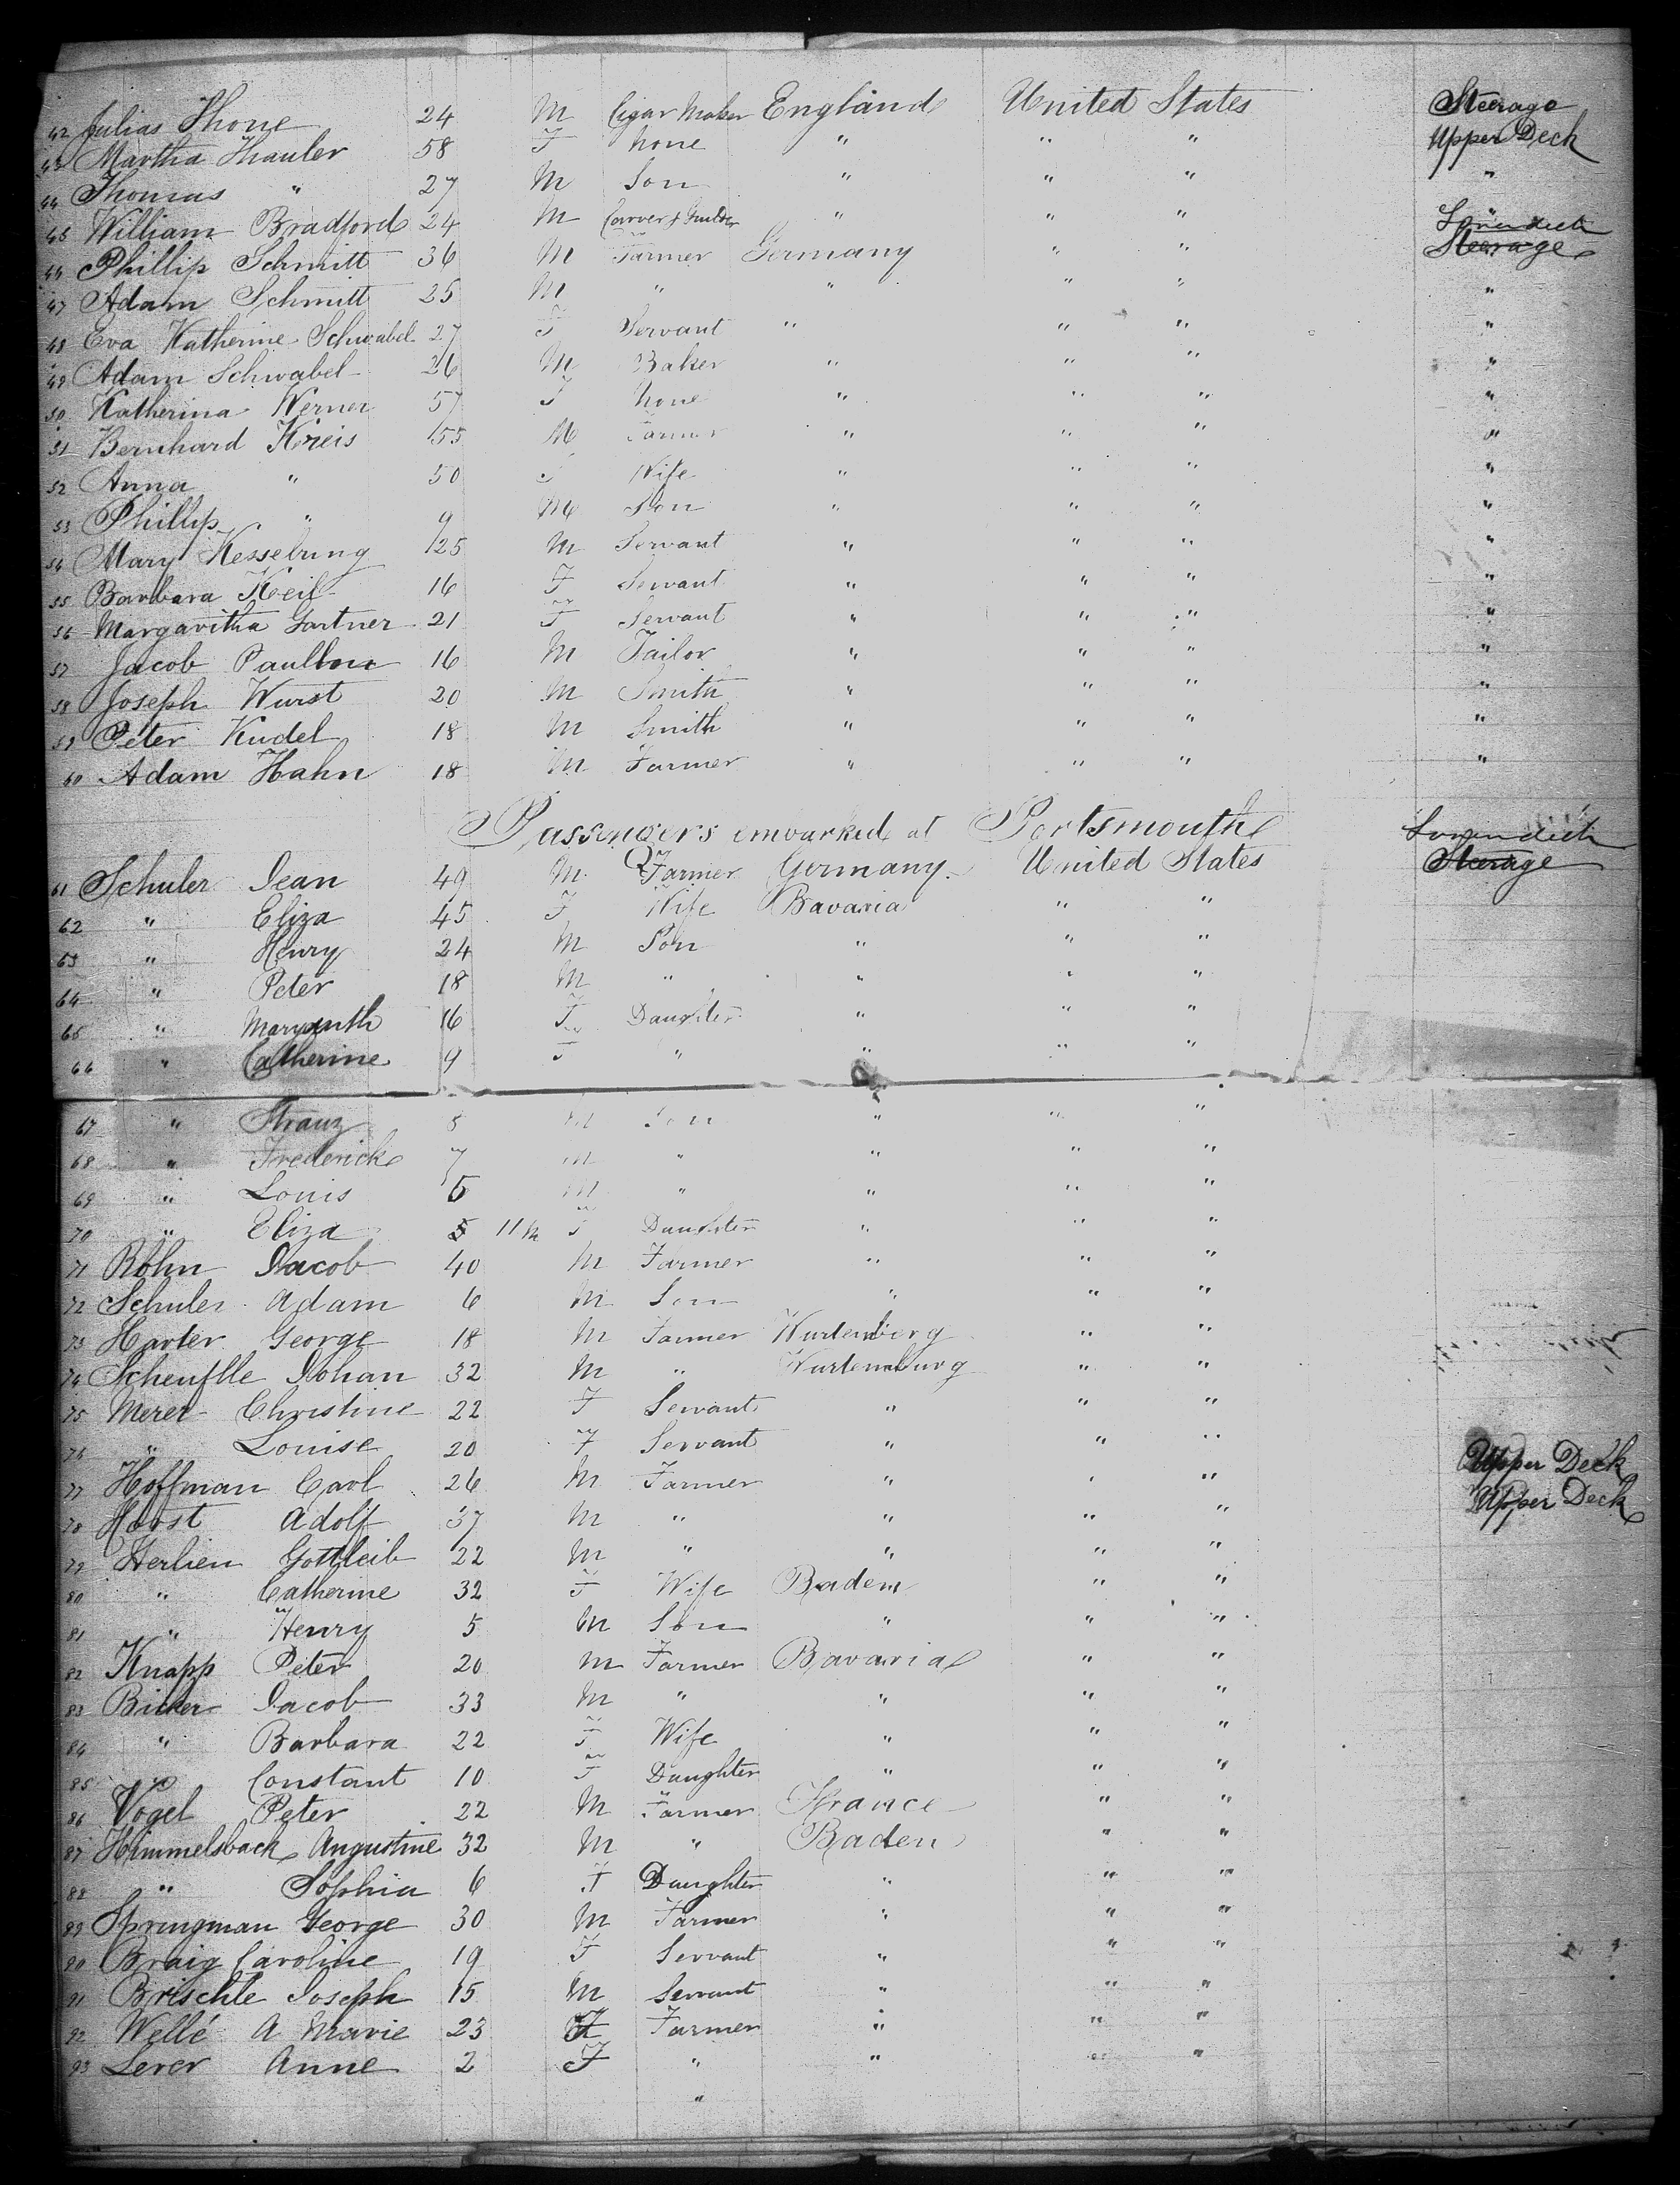 42 Julias Thone 24 M Cigar Maker England United States Steerage
43 Martha Thauler 58 F None " " " Upper Deck
44 Thomas " 27 M Son " " " "
45 William Bradford 24 M Carver & Guilder " " " "
Phillip Schmitt 36 M Farmer Germany " " Steerage
47 Adam Schmitt 25 M " " " " "
48 Eva Katherine Schwabel 27 F Servant " " " "
49 Adam Schwabel 26 M Baker " " " "
50 Katherina Werner 57 F None " " " "
51 Bernhard Kreis 55 M Farmer " " " "
52 Anna " 50 F Wife " " " "
53 Phillip " 9 M Son " " " "
54 Mary Kesselring 25 M Servant " " " "
55 Barbara Keil 16 F Servant " " " "
56 Margaritha Gartner 21 F Servant " " " "
57 Jacob 16 M Tailor " " " "
58 Joseph Wurst 20 M Smith " " " "
59 Peter Kudel 18 M Smith " " " "
60 Adam Hahn 18 M Farmer " " " "
Passengers embarked at Portsmouth
61 Schuler Jean 49 M Farmer Germany United States Steerage
62 " Eliza 45 F Wife Bavaria " "
63 " Henry 24 M Son " " "
64 " Peter 18 M " " " "
65 " 16 F Daughter " " "
66 " Catherine 9 F " " " "
67 " Franz 8 M Son " " "
68 " Frederick 7 M " " " "
69 " Louis 5 M " " " "
70 " Eliza 11 M F Daughter " " "
71 Röhn Jacob 40 M Farmer " " "
72 Schuler Adam 6 M Son " " "
73 Harter George 18 M Farmer Wurtenberg " "
74 Scheuflle Johan 32 M " Wurtemburg " "
75 Merer Christine 22 F Servant " " "
76 " Louise 20 F Servant " " " Upper Deck
77 Hoffman Carl 26 M Farmer " " " Upper Deck
78 Horst Adolf 37 M " " " "
79 Herlien Gottleib 22 M " " " "
80 " Catherine 32 F Wife Baden " "
81 " Henry 5 M Son " " "
82 Knapp Peter 20 M Farmer Bavaria " "
83 Bicker Jacob 33 M " " " "
84 " Barbara 22 F Wife " " "
85 " Constant 10 F Daughter " " "
86 Vogel Peter 22 M Farmer France " "
87 Himmelsback Augustine 32 M " Baden " "
88 " Sophia 6 F Daughter " " "
89 Springman George 30 M Farmer " " "
90 Braig Caroline 19 F Servant " " "
91 Brischle Joseph 15 M Servant " " "
92 Wellé A Marie 23 F Farmer " " "
93 Lerer Anne 2 F " " " "
"